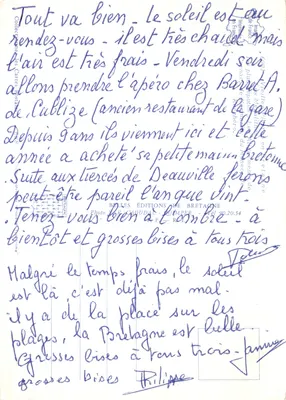 Tout va bien - le soleil est au
rendez-vous - il est très chaud mais
l'air est très frais - Vendredi soir
allons prendre l'apéro chez Barrut A.
de Cublize (ancien restaurant de la gare)
Depuis 9 ans ils viennent ici et cette
année a acheté sa petite maison bretonne
Suite aux tiercés de Deauville ferons
peut-être pareil l'an que vint-
Tenez-vous bien à l'ombre - à
bientôt et grosses bises à tous trois
Malgré le temps frais, le soleil
est là, c'est déjà pas mal-
il y a de la place sur les
plages, la Bretagne est belle
Grosses bises à tous trois-
grosses bises Philippe